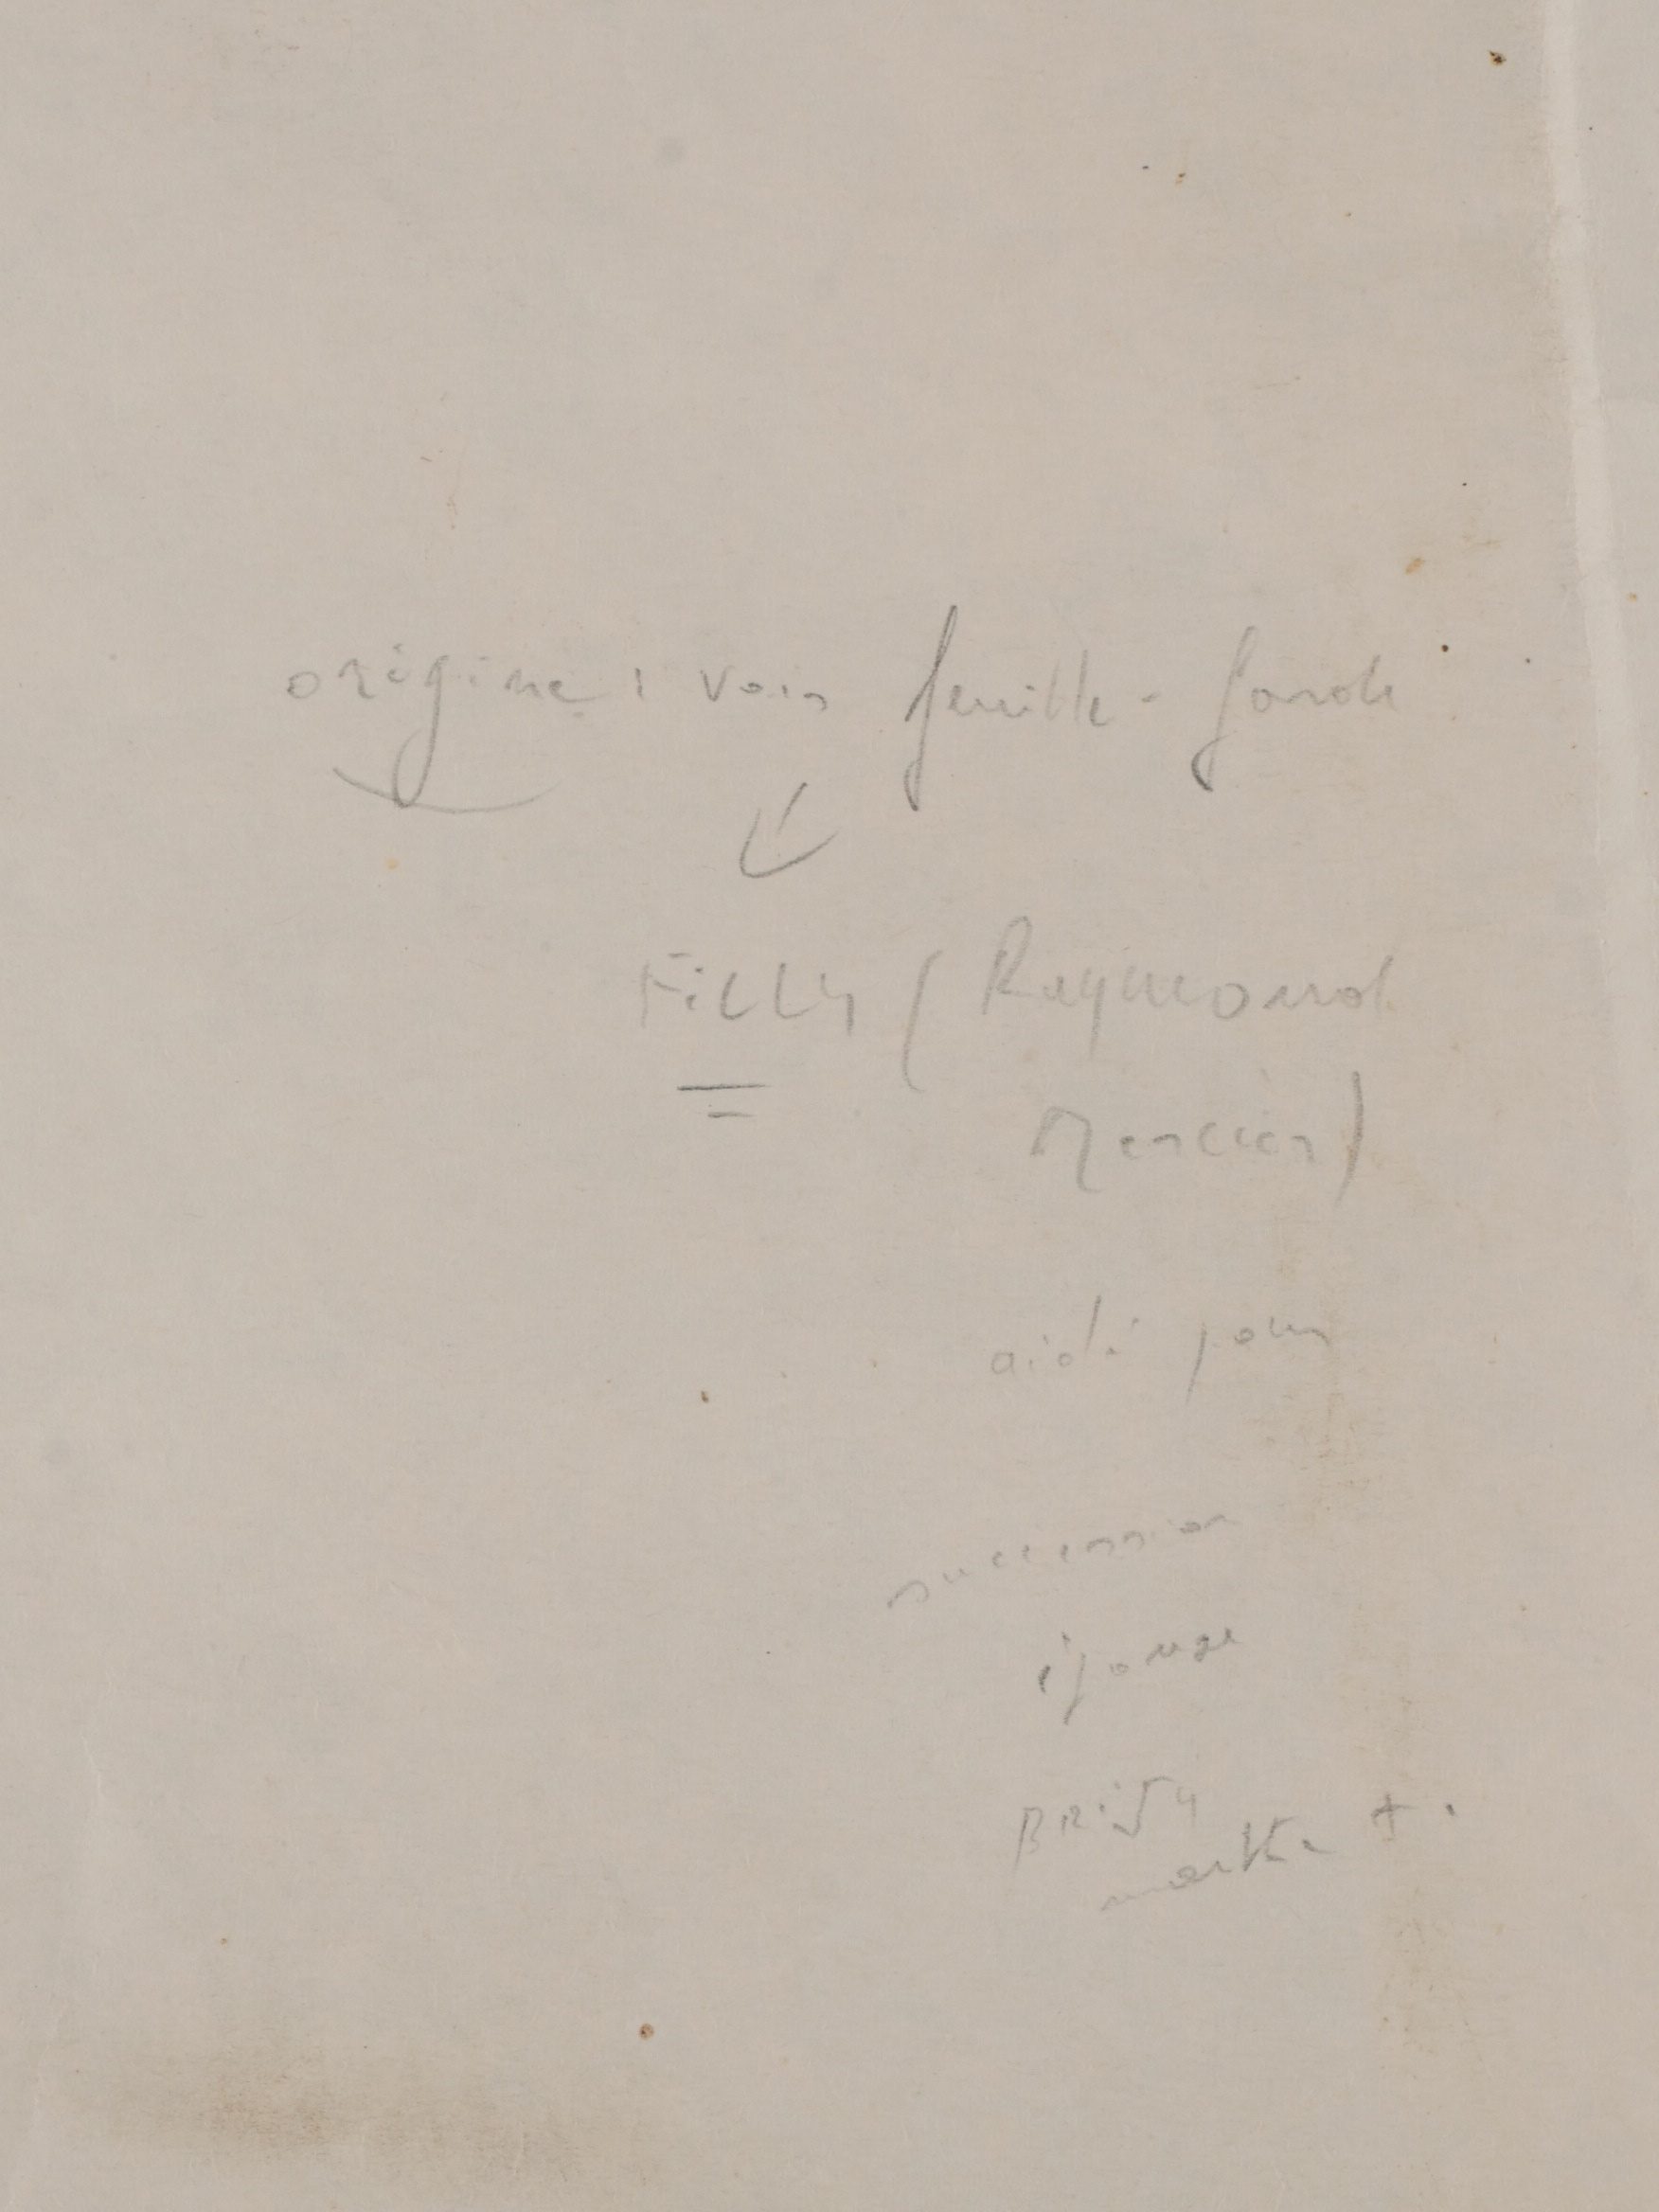 origine : voir feuille-garde
FiLLy (Raymond
Mercier)
aidé pour
succession
épouse
BRiSy